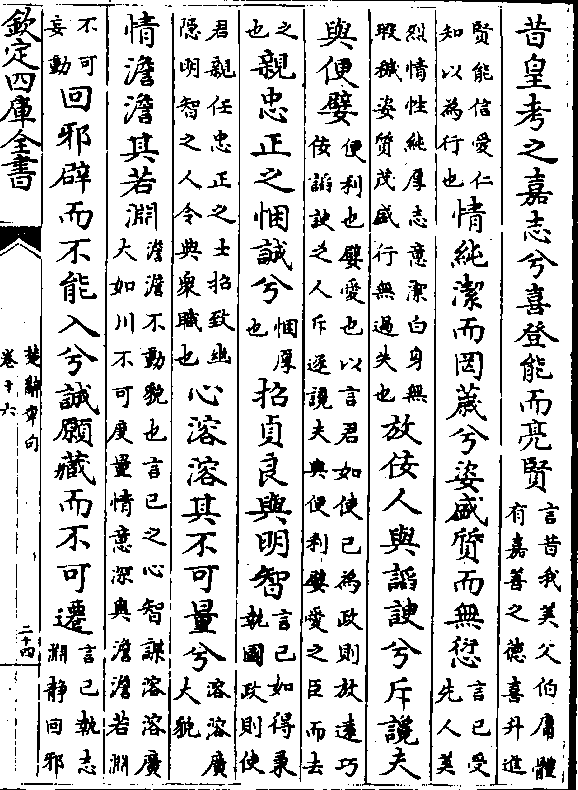 昔皇考之嘉志兮喜登能而亮賢言昔我美父伯庸體有嘉善之德喜升進
賢能信愛仁知以為行也情純潔而罔薉兮姿盛質而無愆言已受先人美
烈情性純厚志意潔白身無瑕穢姿質茂盛行無過失也放佞人與諂諛兮斥讒夫
與便嬖便利也嬖愛也以言君如使已為政則放遠巧佞諂諛之人斥逐讒夫與便利嬖愛之臣而去
之也親忠正之悃誠兮悃厚也招貞良與明智言已如得秉執國政則使
君親任忠正之士招致幽隠明智之人令典衆職也心溶溶其不可量兮溶溶廣大貌
情澹澹其若淵澹澹不動貌也言已之心智謀溶溶廣大如川不可度量情意深奥澹澹若淵
不可妄動回邪辟而不能入兮誠願藏而不可遷言已執志淵静回邪
欽定四庫全書
楚辭章句
卷十六
二十四